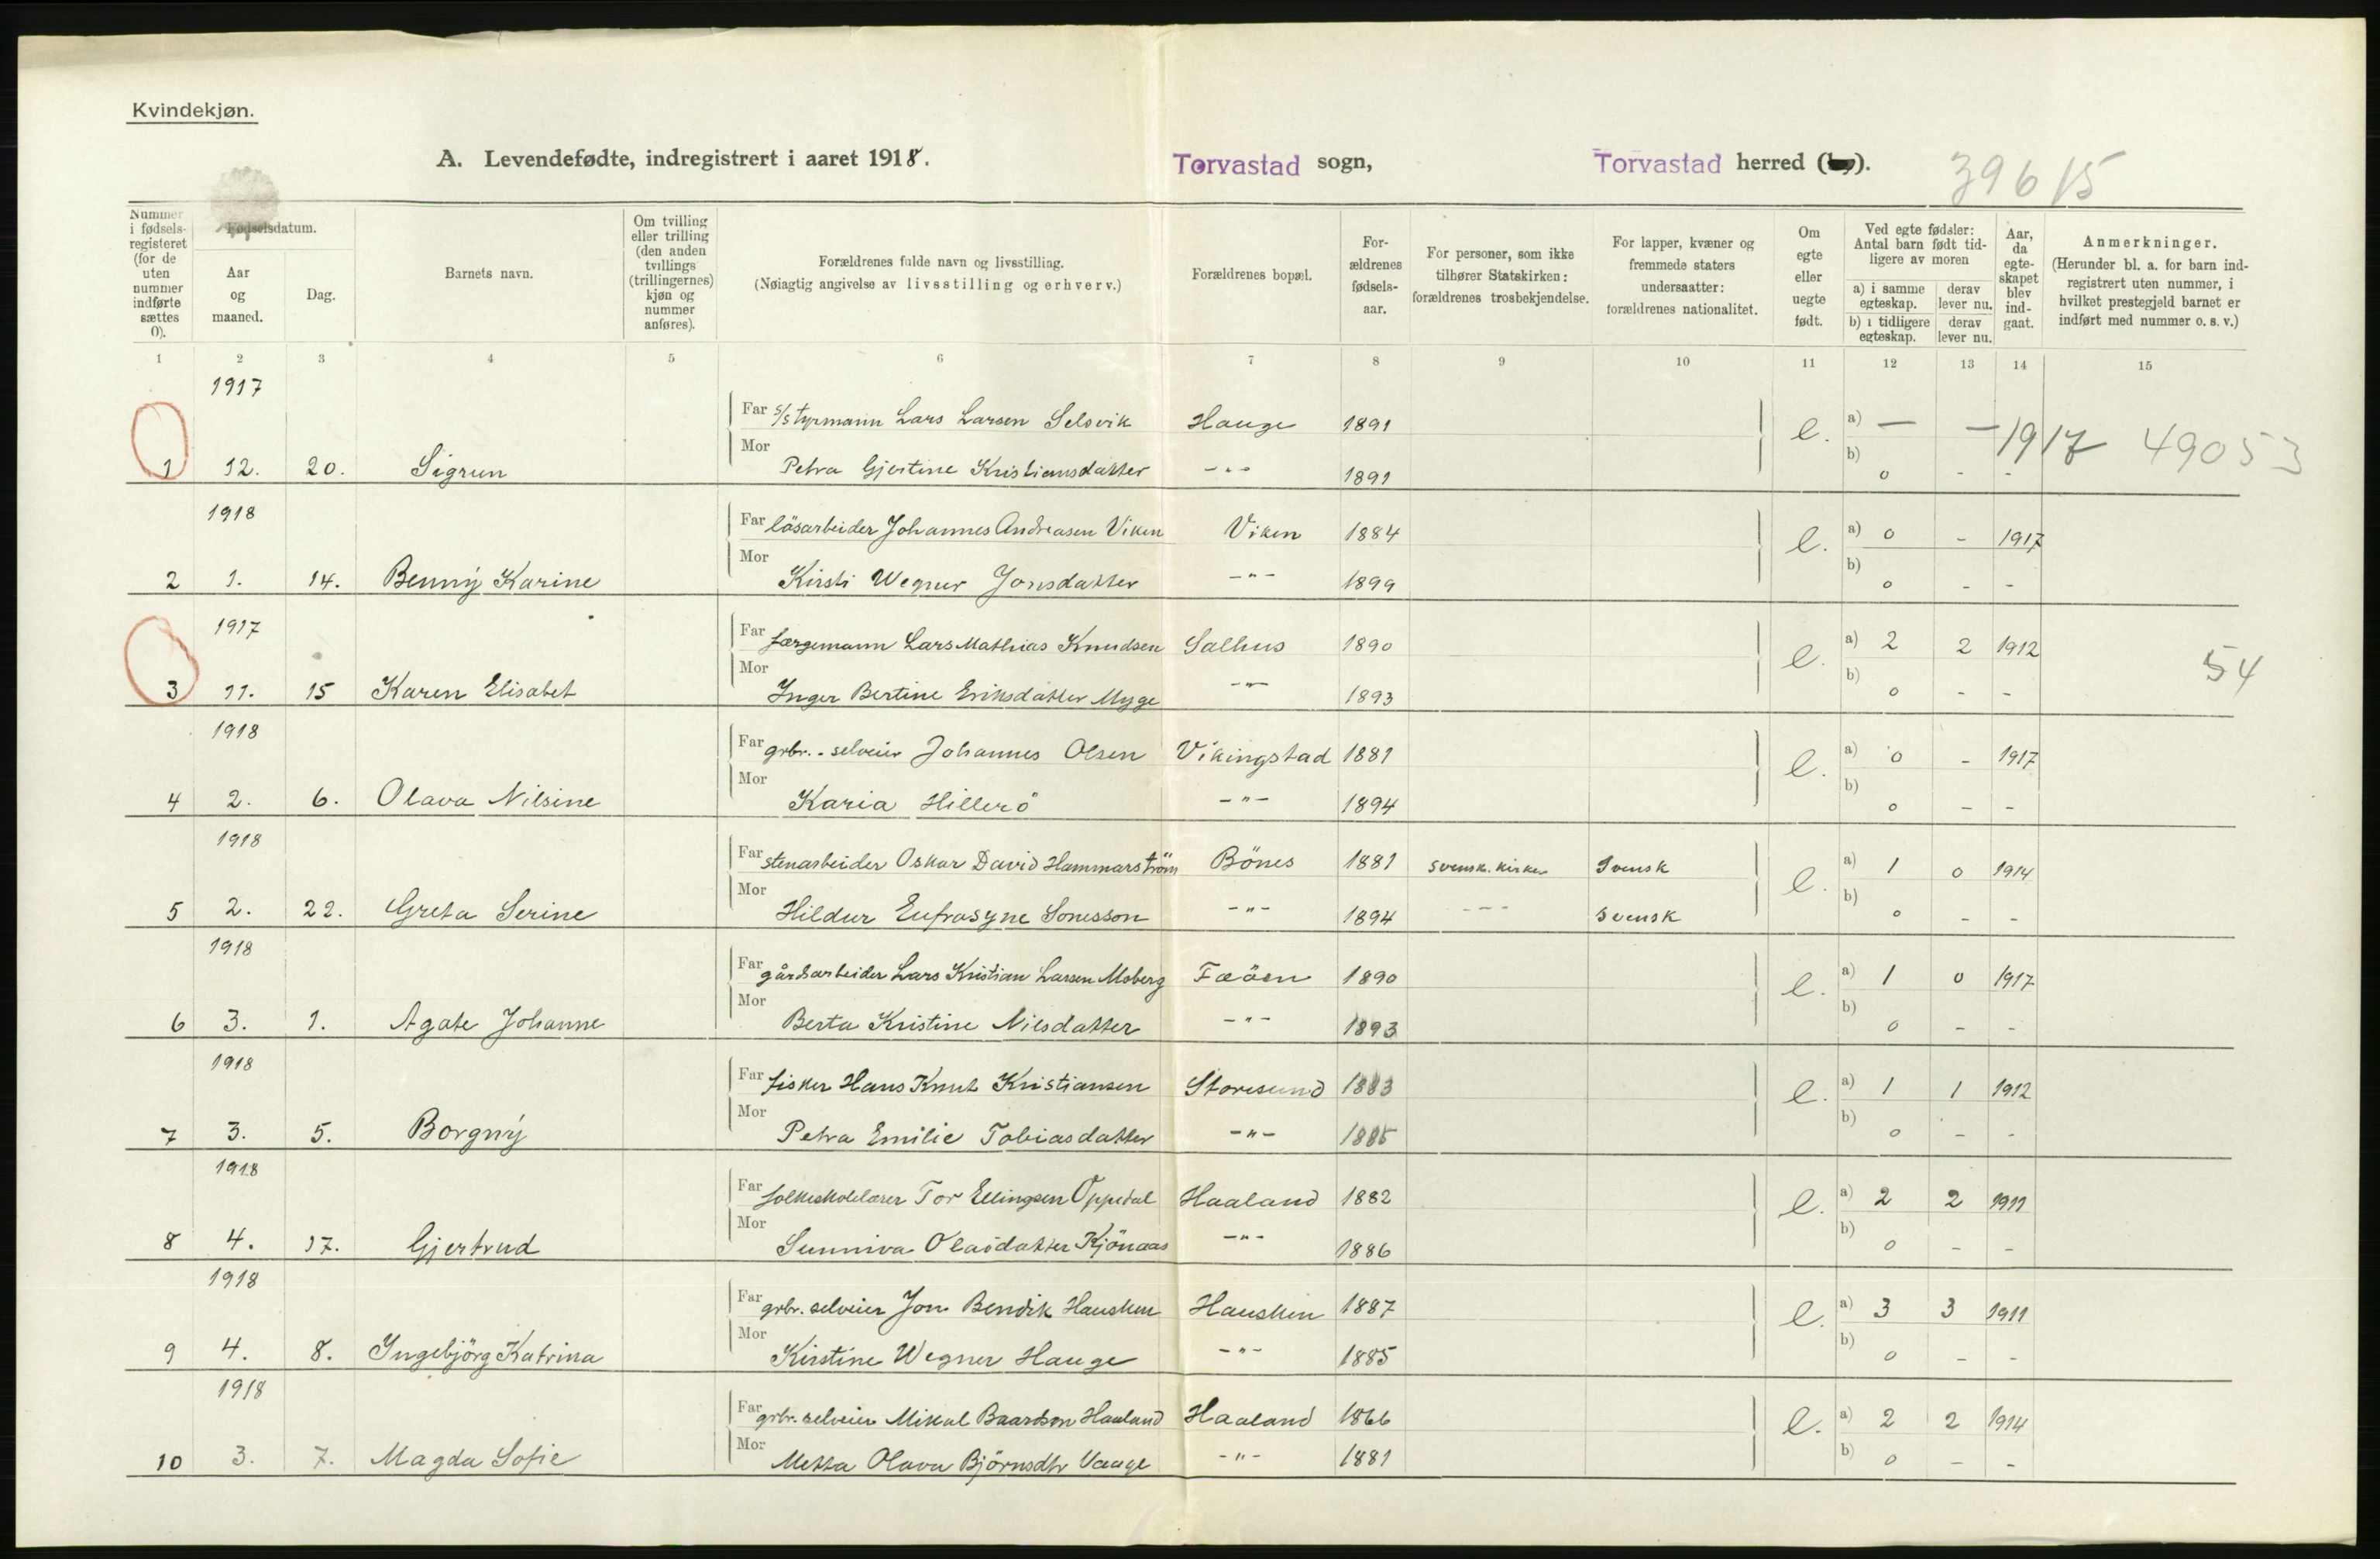 Kvindekjøn.
A. Levendefødte, indregistrert i aaret 1918. Torvastad sogn, Torvastad herred (by).
39615
Nummer i fødselsregisteret (for de uten nummer indførte sættes 0).
Fødselsdatum.
Aar og maaned.
Dag.
Barnets navn.
Om tvilling eller trilling (den anden tvillings (trillingernes) kjøn og nummer anføres).
Forældrenes fulde navn og livsstilling.
(Nøiagtig angivelse av livsstilling og erhverv.)
Forældrenes bopæl.
For-ældrenes fødsels-aar.
For personer, som ikke tilhører Statskirken: forældrenes trosbekjendelse.
For lapper, kvæner og fremmede staters undersaatter: forældrenes nationalitet.
Om egte eller uegte født.
Ved egte fødsler: Antal barn født tidligere av moren
a) i samme egteskap. derav lever nu.
b) i tidligere egteskap. derav lever nu.
Aar, da egteskapet blev indgaat.
Anmerkninger.
(Herunder bl. a. for barn indregistrert uten nummer, i hvilket prestegjeld barnet er indført med nummer o. s. v.)
1 2 3 4 5 6 7 8 9 10 11 12 13 14 15
1917
Far s/s tyrmann Lars Larsen Selsvik Hauge 1891 e. a) — — 1917 49053
1 12. 20. Sigrun Mor Petra Gjertine Kristiansdatter -"- 1891 b) 0 - -
1918
Far løsarbeider Johannes Andreasen Viken Viken 1884 e. a) 0 - 1917
2 1. 14. Benny Karine Mor Kirsti Wegner Jonsdatter -"- 1899 b) 0 - -
1917
Far færgemann Lars Mathias Knudsen Salhus 1890 e. a) 2 2 1912 54
3 11. 15 Karen Elisabet Mor Inger Bertine Eriksdatter Myge -"- 1893 b) 0 - -
1918
Far grbr. - selveier Johannes Olsen Vikingstad 1881 e. a) 0 - 1917
4 2. 6. Olava Nilsine Mor Karia Hillerö -"- 1894 b) 0 - -
1918
Far stenarbeider Oskar David Hammarström Bönes 1881 svensk. kirke Svensk e. a) 1 0 1914
5 2. 22. Greta Serine Mor Hildur Eufrasyne Sonesson -"- 1894 -"- svensk b) 0 - -
1918
Far gårdsarbeider Lars Kristian Larsen Moberg Fæöen 1890 e. a) 1 0 1917
6 3. 1. Agate Johanne Mor Berta Kristine Nilsdatter -"- 1893 b) 0 - -
1918
Far fisker Hans Knut Kristiansen Storesund 1883 e. a) 1 1 1912
7 3. 5. Borgny Mor Petra Emilie Tobiasdatter -"- 1885 b) 0 - -
1918
Far folkeskolelærer Tor Ellingsen Oppedal Haaland 1882 e. a) 2 2 1911
8 4. 17. Gjertrud Mor Sunniva Olavdatter Kjönaas -"- 1886 b) 0 - -
1918
Far grbr. selveier Jon Bendik Hausken Hausken 1887 e. a) 3 3 1911
9 4. 8. Ingebjörg Katrina Mor Kirstine Wegner Hauge -"- 1885 b) 0 - -
1918
Far grbr. selveier Mikal Baardsen Haaland Haaland 1866 e. a) 2 2 1914
10 3. 7. Magda Sofie Mor Metta Olava Björnsdtr Vaage -"- 1881 b) 0 - -